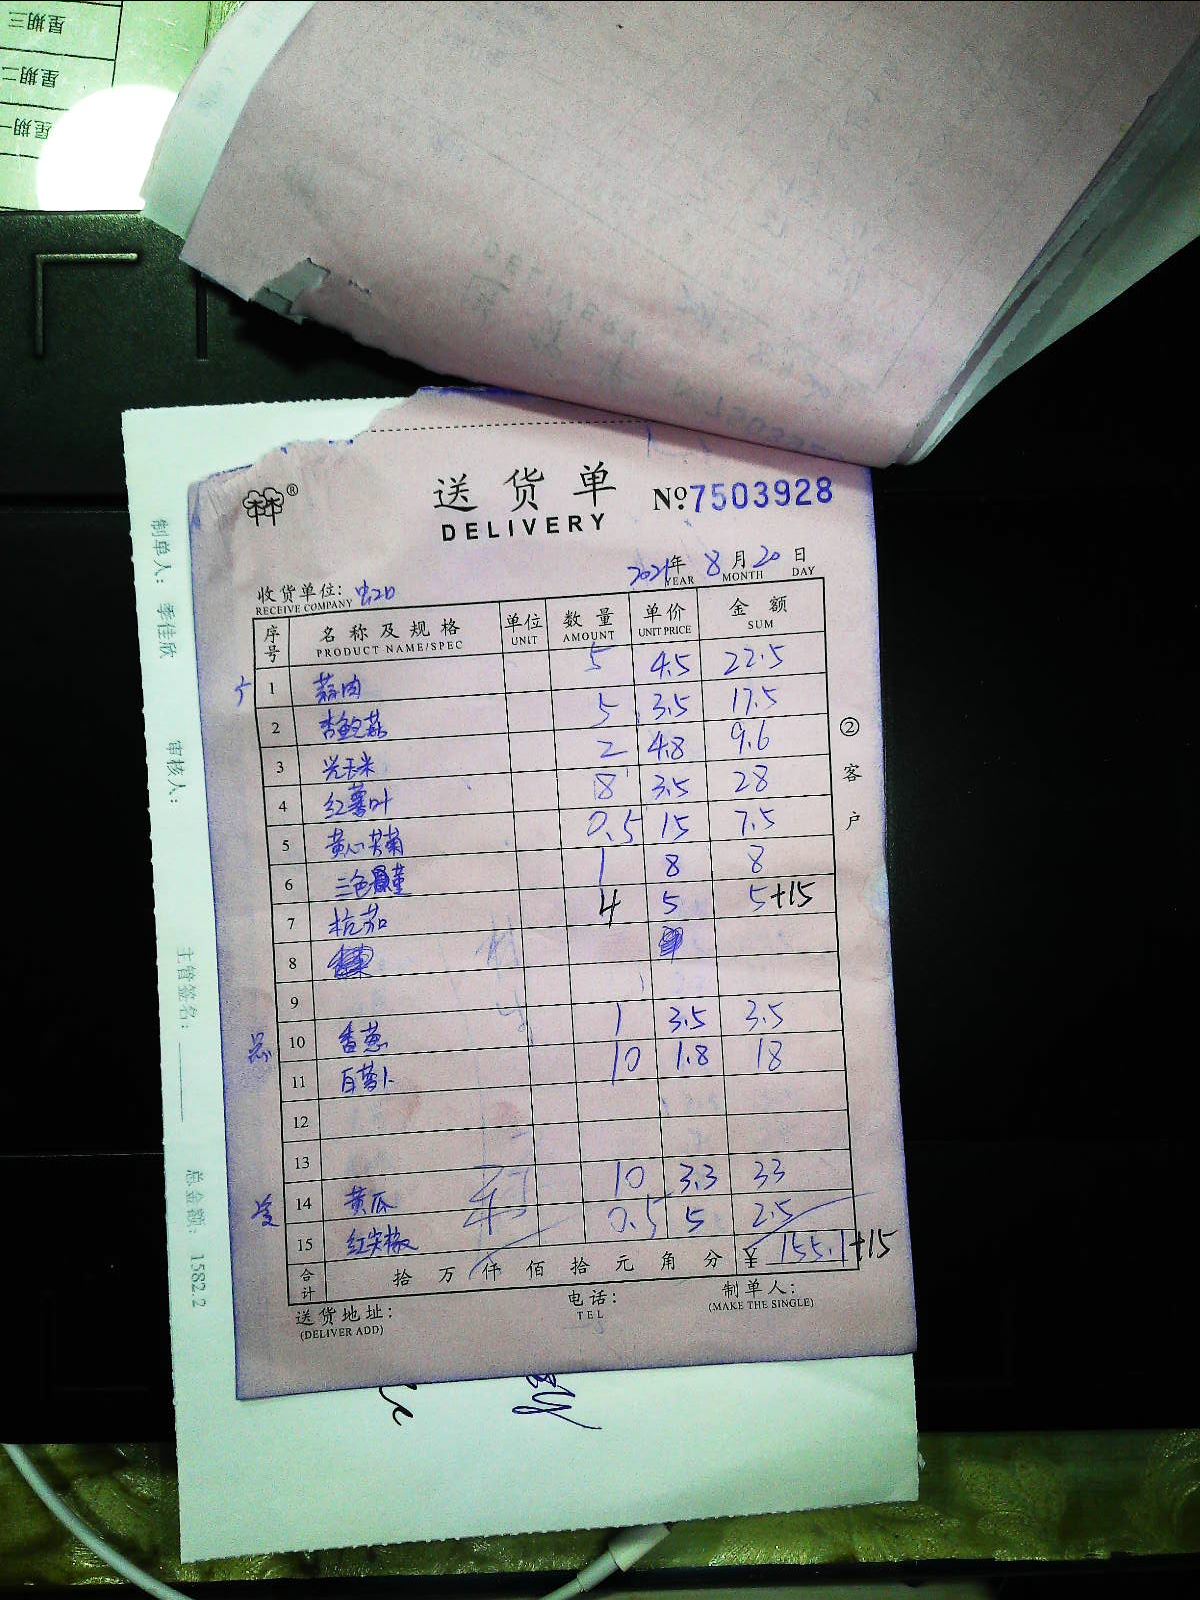 星期三
星期二
星期一
林®
送货单
DELIVERY
№7503928
2021年 8月20日
YEAR MONTH DAY
收货单位:
RECEIVE COMPANY
序号 名称及规格 单位 数量 单价 金额
PRODUCT NAME/SPEC UNIT AMOUNT UNIT PRICE SUM
1 蒜肉 5 4.5 22.5
2 杏鲍菇 5 3.5 17.5
3 光玉米 2 4.8 9.6
4 红薯叶 8 3.5 28
5 黄心芙菊 0.5 15 7.5
6 三色堇 1 8 8
7 杭茄 4 5 5+15
8
9
10 香葱 1 3.5 3.5
11 白萝卜 10 1.8 18
12
13
14 黄瓜 10 3.3 33
15 红尖椒 0.5 5 2.5
合计 拾 万 仟 佰 拾 元 角 分 ¥ 155.1+15
送货地址:
(DELIVER ADD)
电话:
TEL
制单人:
(MAKE THE SINGLE)
②客户
制单人: 季佳欣
审核人:
主管签名:
总金额: 1582.2